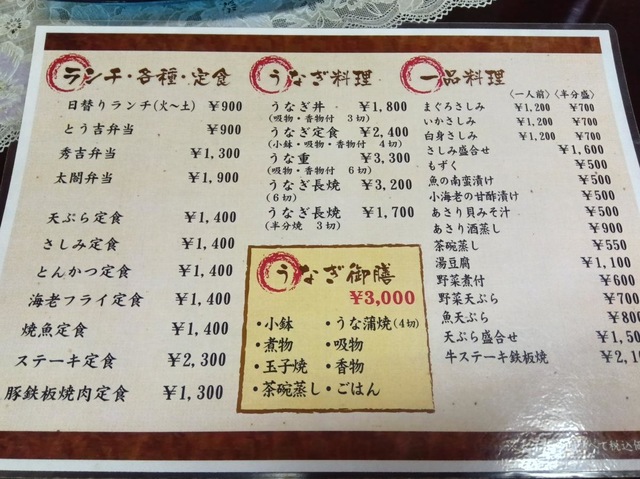 ランチ・各種・定食
日替りランチ(火〜土) ¥900
とう吉弁当 ¥900
秀吉弁当 ¥1,300
太閤弁当 ¥1,900
天ぷら定食 ¥1,400
さしみ定食 ¥1,400
とんかつ定食 ¥1,400
海老フライ定食 ¥1,400
焼魚定食 ¥1,400
ステーキ定食 ¥2,300
豚鉄板焼肉定食 ¥1,300
うなぎ料理
うなぎ丼 ¥1,800
(吸物・香物付 3切)
うなぎ定食 ¥2,400
(小鉢・吸物・香物付 4切)
うな重 ¥3,300
(吸物・香物付 6切)
うなぎ長焼 ¥3,200
(6切)
うなぎ長焼 ¥1,700
(半分焼 3切)
うなぎ御膳
¥3,000
・小鉢 ・うな蒲焼(4切)
・煮物 ・吸物
・玉子焼 ・香物
・茶碗蒸し ・ごはん
一品料理
〈一人前〉 〈半分盛〉
まぐろさしみ ¥1,200 ¥700
いかさしみ ¥1,200 ¥700
白身さしみ ¥1,200 ¥700
さしみ盛合せ ¥1,600
もずく ¥500
魚の南蛮漬け ¥500
小海老の甘酢漬け ¥500
あさり貝みそ汁 ¥500
あさり酒蒸し ¥900
茶碗蒸し ¥550
湯豆腐 ¥1,100
野菜煮付 ¥600
野菜天ぷら ¥700
魚天ぷら ¥800
天ぷら盛合せ ¥1,50
牛ステーキ鉄板焼 ¥2,1
べて税込価